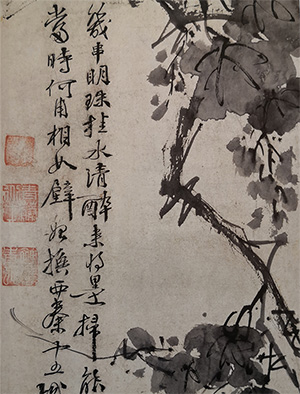 幾串明珠挂水清醉来将墨掃能
當時何用相如璧始換西秦十五城